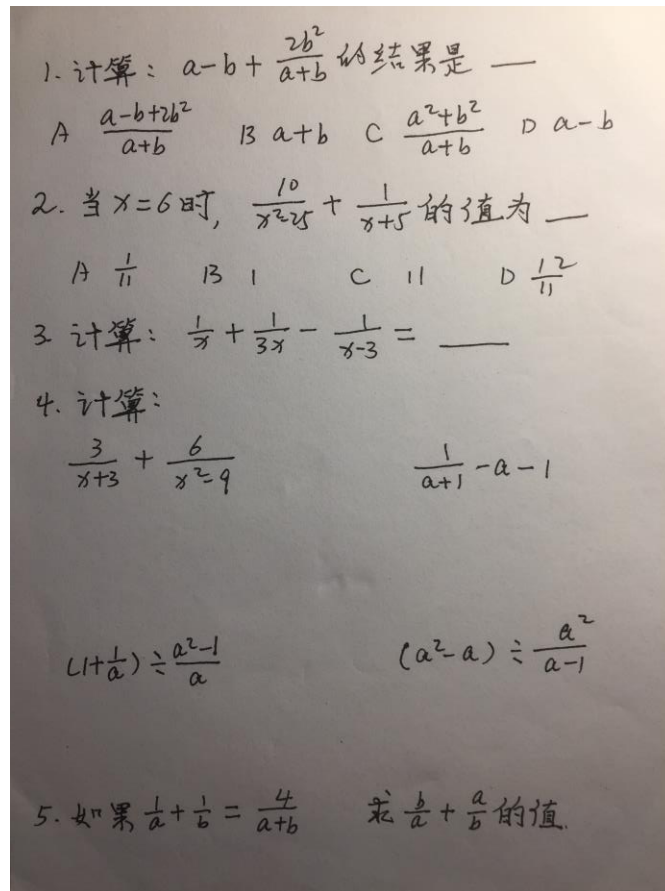 1. 计算： a-b+\frac{2b²}{a+b} 的结果是 __
A \frac{a-b+2b²}{a+b} B a+b C \frac{a²+b²}{a+b} D a-b
2. 当 x=6时, \frac{10}{x²-25} + \frac{1}{x+5} 的值为 __
A \frac{1}{11} B 1 C 11 D \frac{12}{11}
3. 计算： \frac{1}{x} + \frac{1}{3x} - \frac{1}{x-3} = ___
4. 计算：
\frac{3}{x+3} + \frac{6}{x²-9} \frac{1}{a+1} -a-1
(1+\frac{1}{a}) ÷ \frac{a²-1}{a} (a²-a) ÷ \frac{a²}{a-1}
5. 如果 \frac{1}{a} + \frac{1}{b} = \frac{4}{a+b} 求 \frac{b}{a} + \frac{a}{b} 的值.